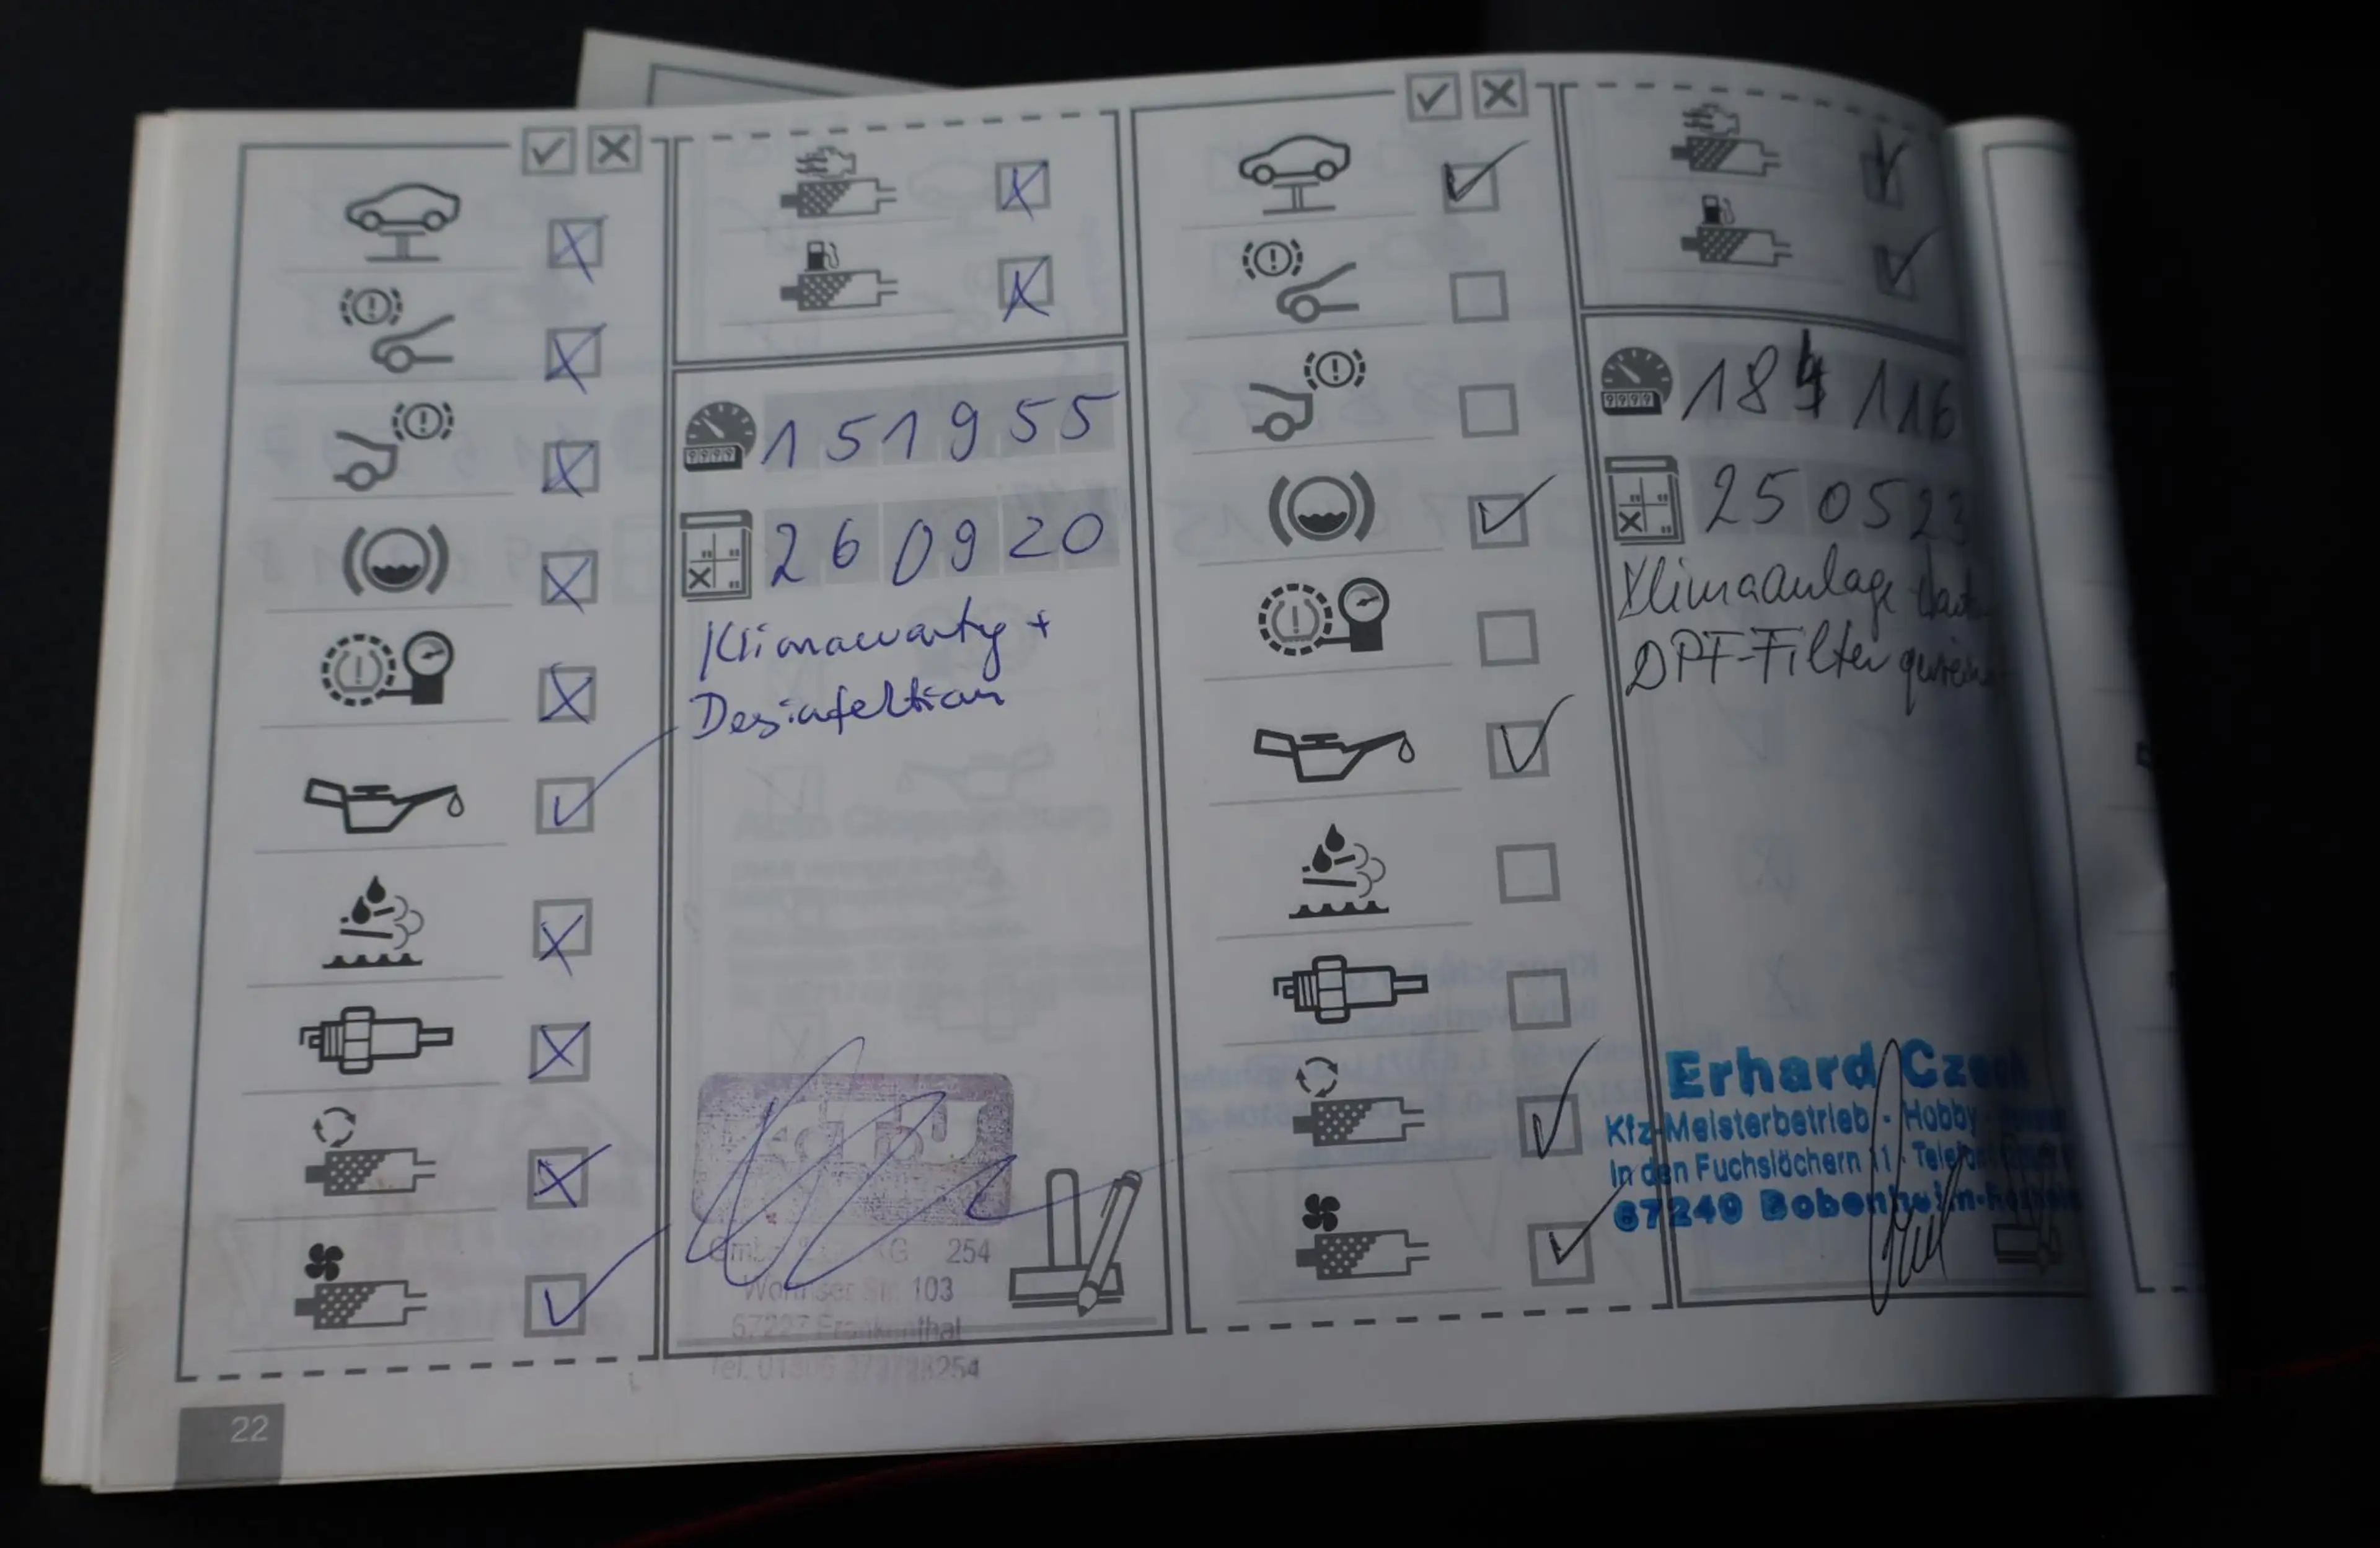 151955
260920
Klimawartg +
Desinfektion
254
Wormser Str. 103
67227 Frankenthal
22
184 116
250523
Klimaanlage
DPF-Filter
Erhard Czech
Kfz-Meisterbetrieb - Hobby
In den Fuchslöchern 11 - Telefon
67240 Bobenheim-Roxheim